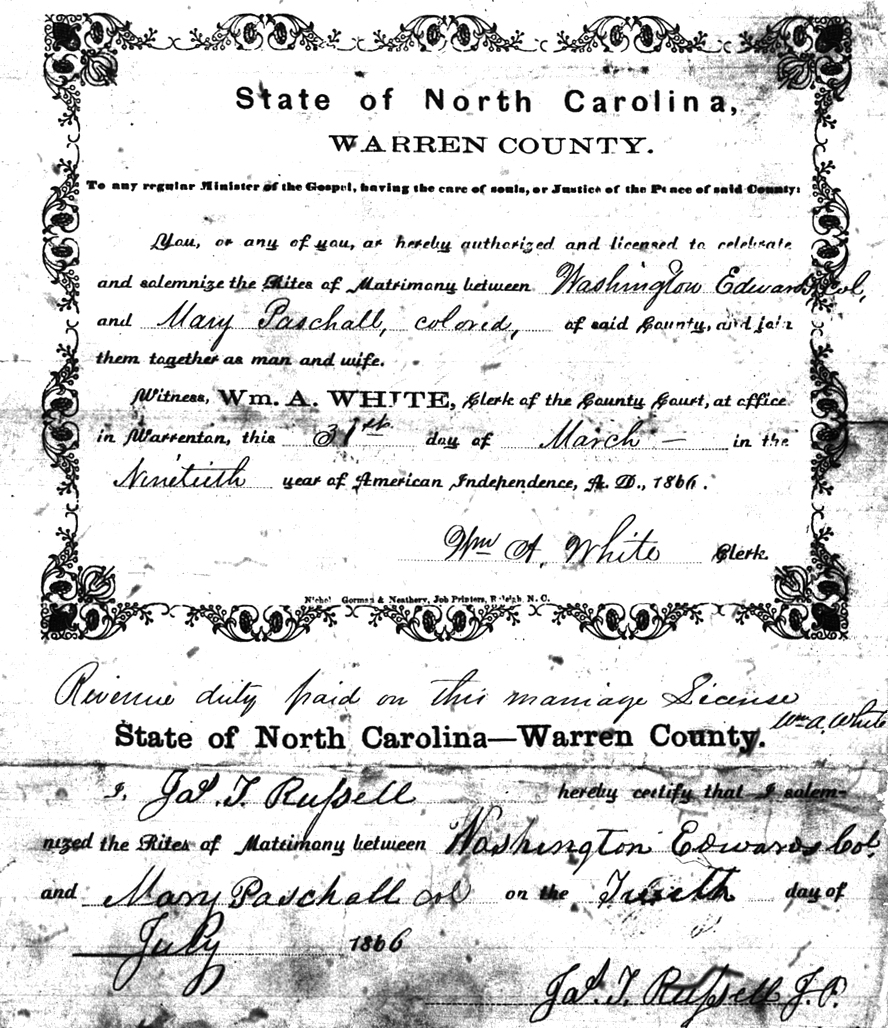 State of North Carolina,
WARREN COUNTY.
To any regular Minister of the Gospel, having the care of souls, or Justice of the Peace of said County:
You, or any of you, ar hereby authorized and licensed to celebrate
and solemnize the Rites of Matrimony between Washington Edwards, Col,
and Mary Paschall, colored, of said County, and join
them together as man and wife.
Witness, Wm. A. WHITE, Clerk of the County Court, at office
in Warrenton, this 31st day of March – in the
Ninetieth year of American Independence, A. D., 1866.
Wm A. White Clerk.
Nichol Gorman & Neathery, Job Printers, Raleigh, N. C.
Revenue duty paid on this marriage License
Wm A. White
State of North Carolina—Warren County.
I, Jas. T. Russell hereby certify that I solem-
nized the Rites of Matrimony between Washington Edwards Col.
and Mary Paschall col on the day of
July 1866
Jas. T. Russell J.P.